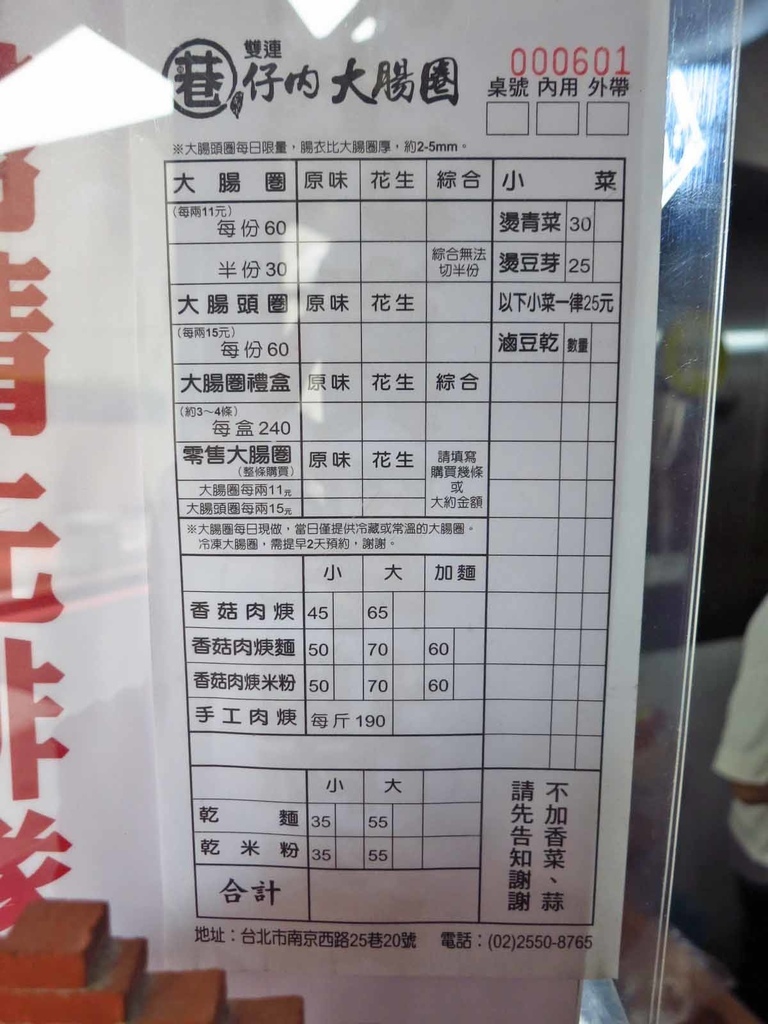 雙連
巷仔內大腸圈
000601
桌號 內用 外帶
※大腸頭圈每日限量，腸衣比大腸圈厚，約2-5mm。
大腸圈 原味 花生 綜合 小菜
(每兩11元)
每份60
燙青菜 30
半份30 綜合無法切半份
燙豆芽 25
大腸頭圈 原味 花生
以下小菜一律25元
(每兩15元)
每份60
滷豆乾 數量
大腸圈禮盒 原味 花生 綜合
(約3～4條)
每盒240
零售大腸圈 原味 花生
(整條購買)
請填寫
購買幾條
或
大約金額
大腸圈每兩11元
大腸頭圈每兩15元
※大腸圈每日現做，當日僅提供冷藏或常溫的大腸圈。
冷凍大腸圈，需提早2天預約，謝謝。
小 大 加麵
香菇肉焿 45 65
香菇肉焿麵 50 70 60
香菇肉焿米粉 50 70 60
手工肉焿 每斤190
小 大
乾麵 35 55
乾米粉 35 55
合計
不加香菜、蒜
請先告知謝謝
地址：台北市南京西路25巷20號 電話：(02)2550-8765